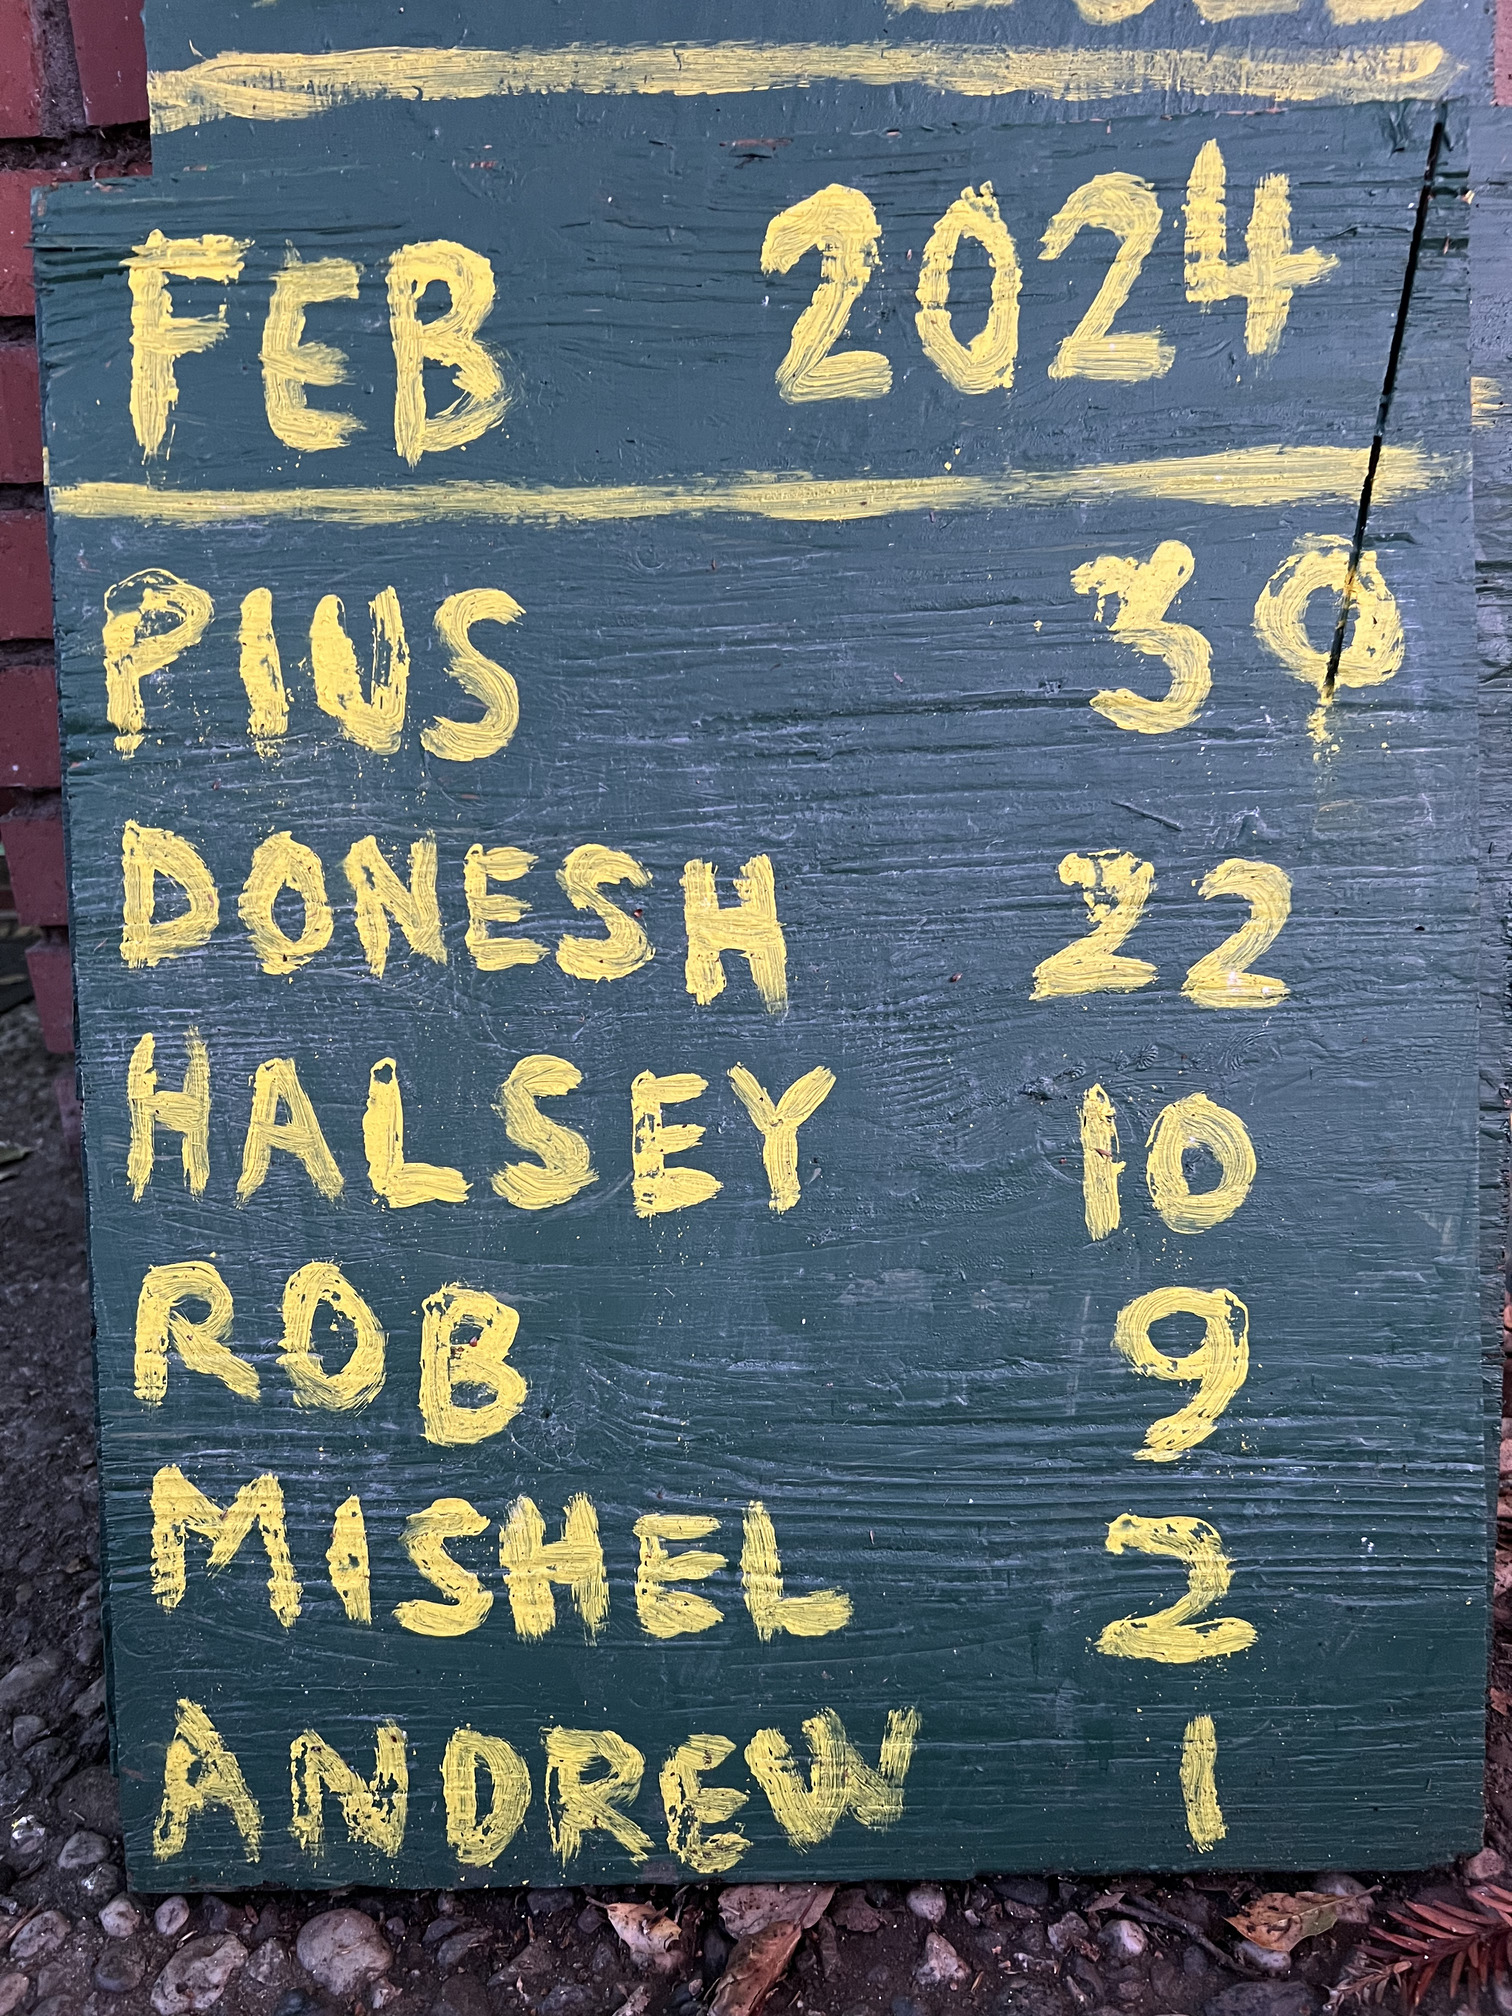 FEB 2024
PIUS 30
DONESH 22
HALSEY 10
ROB 9
MISHEL 2
ANDREW 1